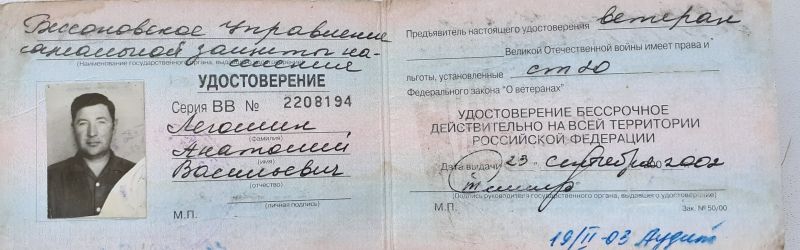 Бессоновское Управление
социальной защиты на-
селения
(Наименование государственного органа, выдавшего удостоверение)
УДОСТОВЕРЕНИЕ
Серия ВВ № 2208194
Легошин
(фамилия)
Анатолий
(имя)
Васильевич
(отчество)
(личная подпись)
М.П.
Предъявитель настоящего удостоверения ветеран
Великой Отечественной войны имеет права и
льготы, установленные ст 20
Федерального закона "О ветеранах"
УДОСТОВЕРЕНИЕ БЕССРОЧНОЕ
ДЕЙСТВИТЕЛЬНО НА ВСЕЙ ТЕРРИТОРИИ
РОССИЙСКОЙ ФЕДЕРАЦИИ
Дата выдачи 23 сентября 2002
(Подпись руководителя государственного органа, выдавшего удостоверение)
М.П.
Зак. № 50/00
19/II-03